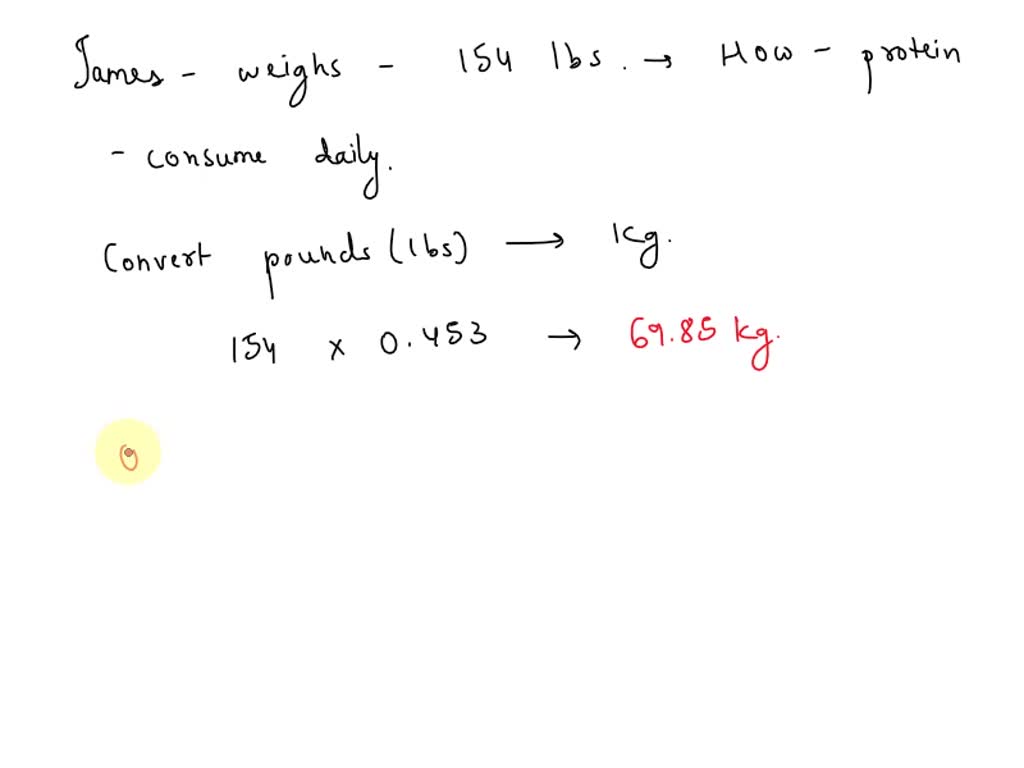 James - weighs - 154 lbs. → How - protein
- consume daily.
Convert pounds (lbs) → kg.
154 x 0.453 → 69.85 kg.
0